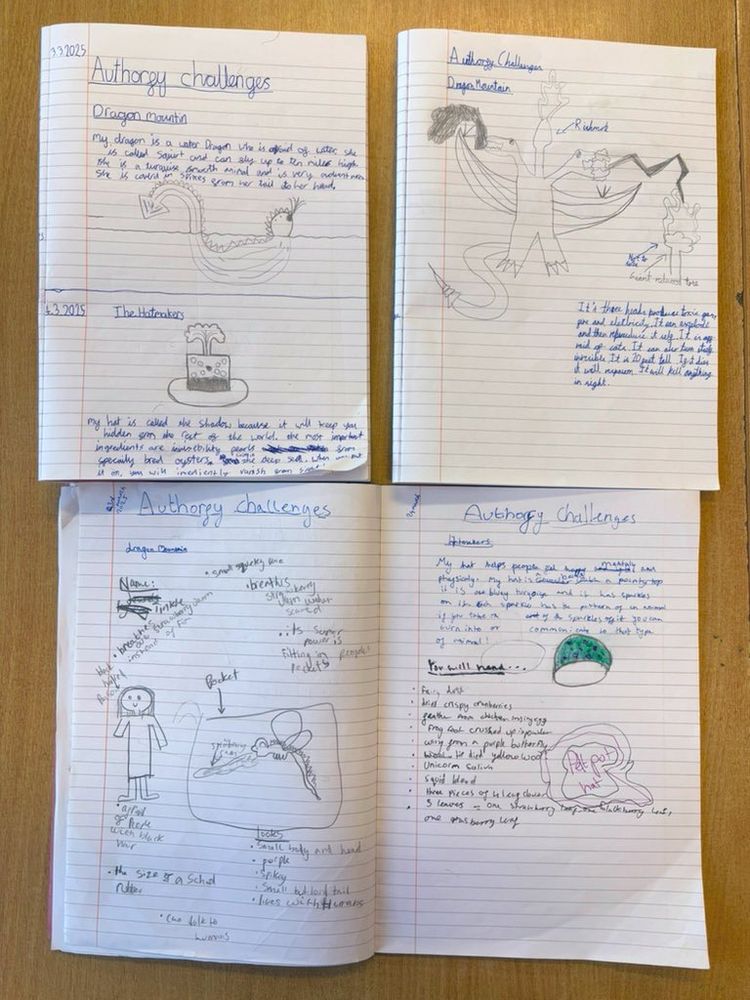 3.3.2025
Authorgy challenges
Dragon Mountin
My dragon is a water Dragon who is afraid of water she
is called Squirt and can fly up to ten miles high.
she is a turquise smooth animal and is very
She is coverd in spikes from her tail to her head.
4.3.2025
The Hatmakers
My hat is called the Shadow because it will keep you
hidden from the rest of the world. the most important
ingredients are invisibility pearls from
specially bred oysters the deep sea. When you put
it on, you will vanish from
Authorgy Challenges
Dragon Mountain
It's three heads produce toxic gas,
fire and electricity. It can explode
and then reproduce it self. It is af
raid of cats. It can also turn
invisible. It is 20 feet tall. If it dies
it will respawn. It will kill anything
in sight.
Authorgy challenges
dragon Mountain
Name:
breathes
strawberry
when
scared
insted of fire
its super
power is
fitting in peoples
pockets
Pocket
afraid
of People
with black
hair
the size of a School
rubber
can talk to
humans
looks
Small body and head
purple
Spikey
Small but long tail
lives with Humans
Authorgy Challenges
Hatmakers
My hat helps people mentaly and
physicaly. My hat is with a pointy top
it is and it has sparkles
on it. Each sparkle has the pattern of an animal
if you take one of the sparkles off it you can
turn into or communicate to that type
of animal!
You will need...
Fairy dust
dried crispy cranberries
feather from chicken
frog foot crushed up in powder
wing from a purple butterfly
died yellow wool
Unicorn Saliva
Squid blood
three pieces of 4 leaf clover
3 leaves - one strawberry leaf, one blackberry leaf,
one rasberry leaf
Felt pot
hat